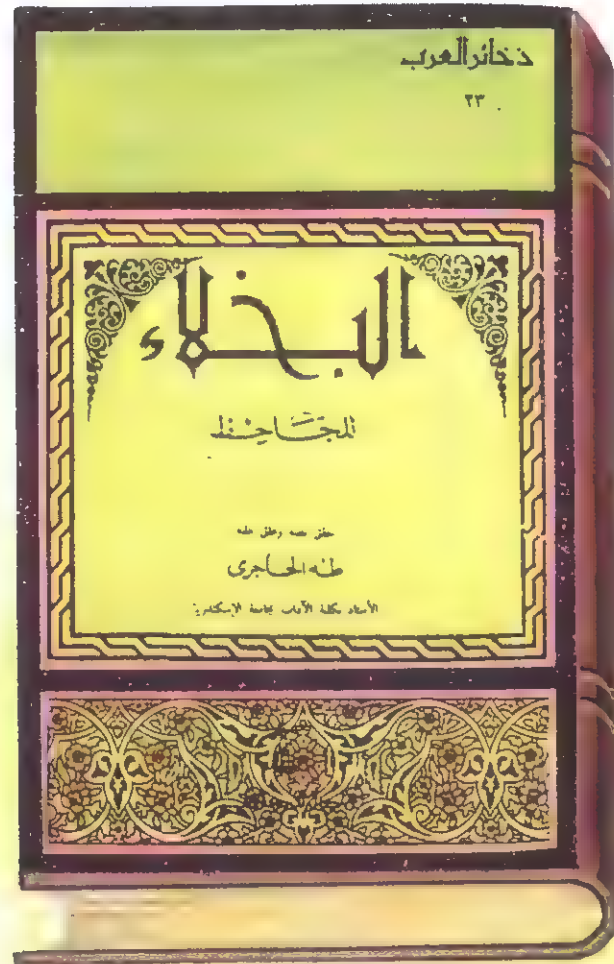 ذخائر العرب
٢٣
البخلاء
للجاحظ
حقق نصه وعلق عليه
طه الحاجرى
الأستاذ بكلية الآداب بجامعة الإسكندرية